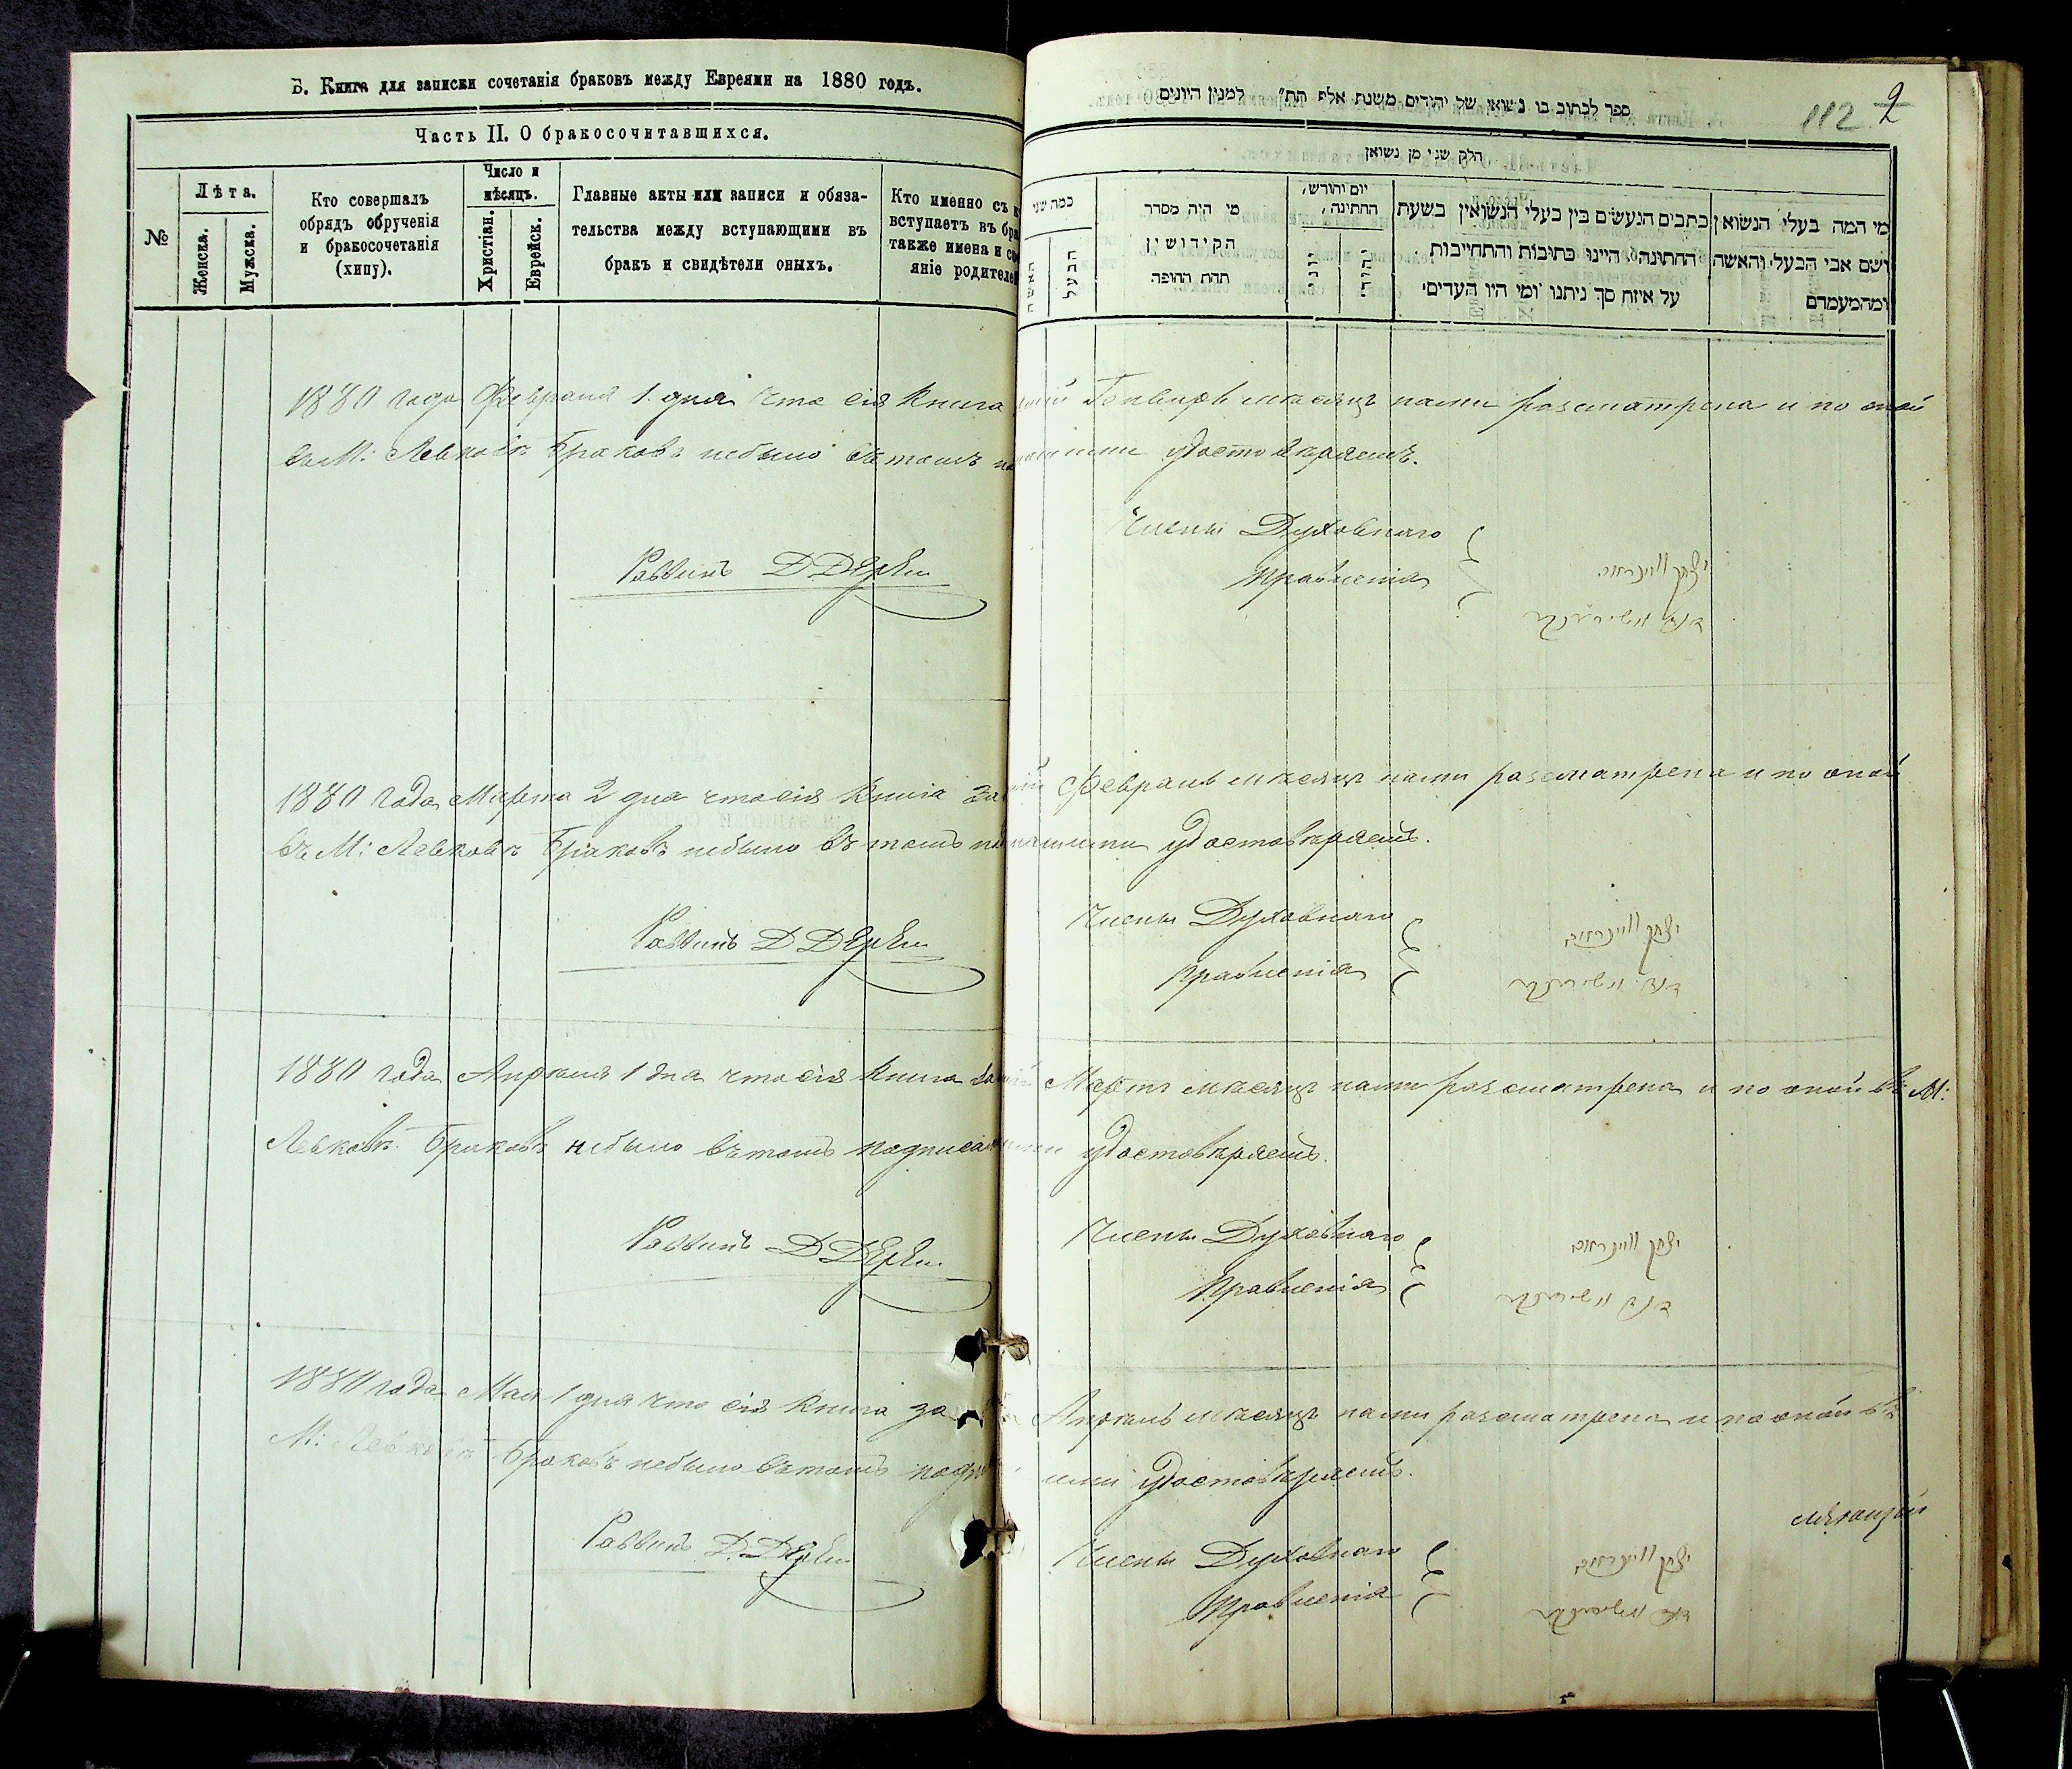 Б. Книга для записки сочетанія браковъ между Евреями на 1880 годъ.
Часть II. О бракосочитавшихся.
№
Лѣта.
Женска.
Мужска.
Кто совершалъ
обрядъ обрученія
и бракосочетанія
(хипу).
Число и
мѣсяцъ.
Христіан.
Еврейск.
Главные акты или записи и обяза-
тельства между вступающими въ
бракъ и свидѣтели оныхъ.
Кто именно съ
вступаетъ въ
также имена и
яніе
ספר לכתוב בו נשואי של יהודים משנת אלף תת״ למנין היונים
112 2
חלק שני מן נשואן
מי המה בעלי הנשואן
ושם אבי הבעל והאשה
ומהמעמדם
כתבים הנעשים בין בעלי הנשואין בשעת
החתונה היינו כתובות והתחייבות
על איזה סך ניתנו ומי היו העדים
יום וחודש
החתינה
יהודי
יוני
מי היה מסדר
הקידושין
תחת החופה
כמה שני
הבעל
האשה
1880 года Февраля 1 дня что сія Книга Генварь мѣсяцъ нами разсматрена и по оной
въ М: Левковѣ браковъ небыло въ томъ удостовѣряемъ.
Раввинъ Д
Члены Духовнаго
Правленія
יצחק
1880 года Марта 2 дня что сія Книга за Февраль мѣсяцъ нами разсматрена и по оной
въ М: Левковѣ браковъ небыло въ томъ удостовѣряемъ.
Раввинъ Д
Члены Духовнаго
Правленія
יצחק
1880 года Апрѣля 1 дня что сія Книга за Мартъ мѣсяцъ нами разсматрена и по оной въ М:
Левковѣ браковъ небыло въ томъ удостовѣряемъ.
Раввинъ Д
Члены Духовнаго
Правленія
יצחק
1880 года Мая 1 дня что сія Книга за Апрѣль мѣсяцъ нами разсматрена и по оной въ
М: Левковѣ браковъ небыло въ томъ удостовѣряемъ.
Раввинъ Д.
Члены Духовнаго
Правленія
יצחק